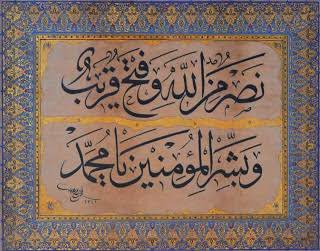 نصر من الله وفتح قريب
وبشر المؤمنين يا محمد